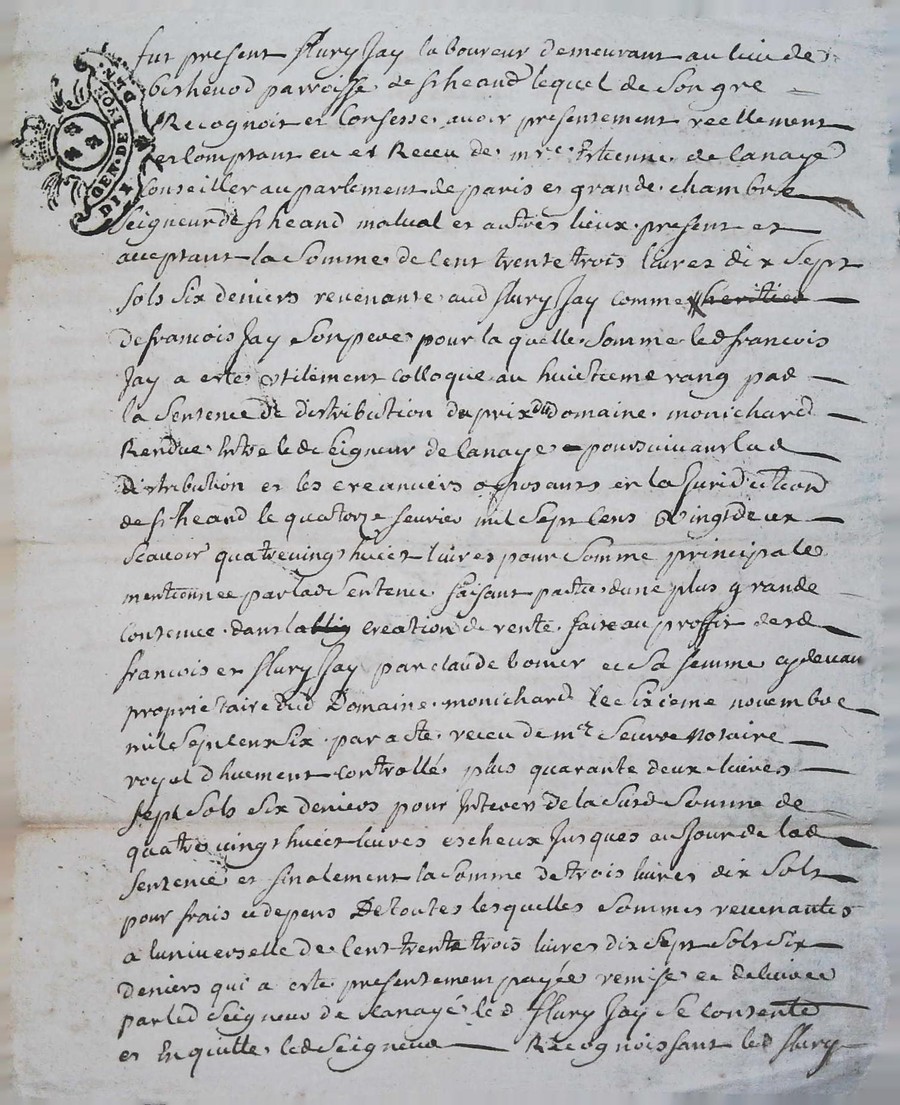 GEN. DE LYON
DIX DEN.
fut present fflury Jay laboureur demeurant au lieu de
bechenod parroisse de st heand lequel de son gre
Recognoit et Confesse avoir presentement reellement
et Comptant eu et Receu de mre Estienne de lanaye
Conseiller au parlement de paris et grande chambre
Seigneur de st heand malval et autres lieux present et
acceptant la somme de Cent trente trois livres dix Sept
Sols Six deniers revenante aud fflury Jay comme heritier
de francois Jay Son pere pour laquelle Somme led francois
Jay a este Utilement Colloque au huictieme rang par
la Sentence de distribution du prix du Domaine monichard
Rendue Entre led Seigneur de lanaye poursuivant lad
distribution et les creanciers oposants en la Juridiction
de st heand le quatorze fevrier mil Sept Cens Vingt deux
Scavoir quatrevingt huict livres pour Somme principale
mentionnee par lad Sentence faisant partie dune plus grande
Contenue dans la oblig creation de rente faite au proffit desd
francois et fflury Jay par claude bomer et Sa femme cydevan
proprietaire dud Domaine monichard le Sixieme novembre
mil Sept Cent Six par acte receu de me Seurre Notaire
royal dhuement Controllé plus quarante deux livres
Sept Sols Six deniers pour Jnterets de la Susd Somme de
quatrevingt huict livres escheux Jusques au Jour de lad
Sentence et finalement la Somme de trois livres dix Sols
pour frais et depens De toutes lesquelles Sommes revenantes
a luniverselle de Cent trente trois livres dix Sept Sols Six
deniers qui a este presentement payée remise et delivree
par led Seigneur de Lanayé led fflury Jay Se contente
et En quitte led Seigneur Recognoissant led fflury